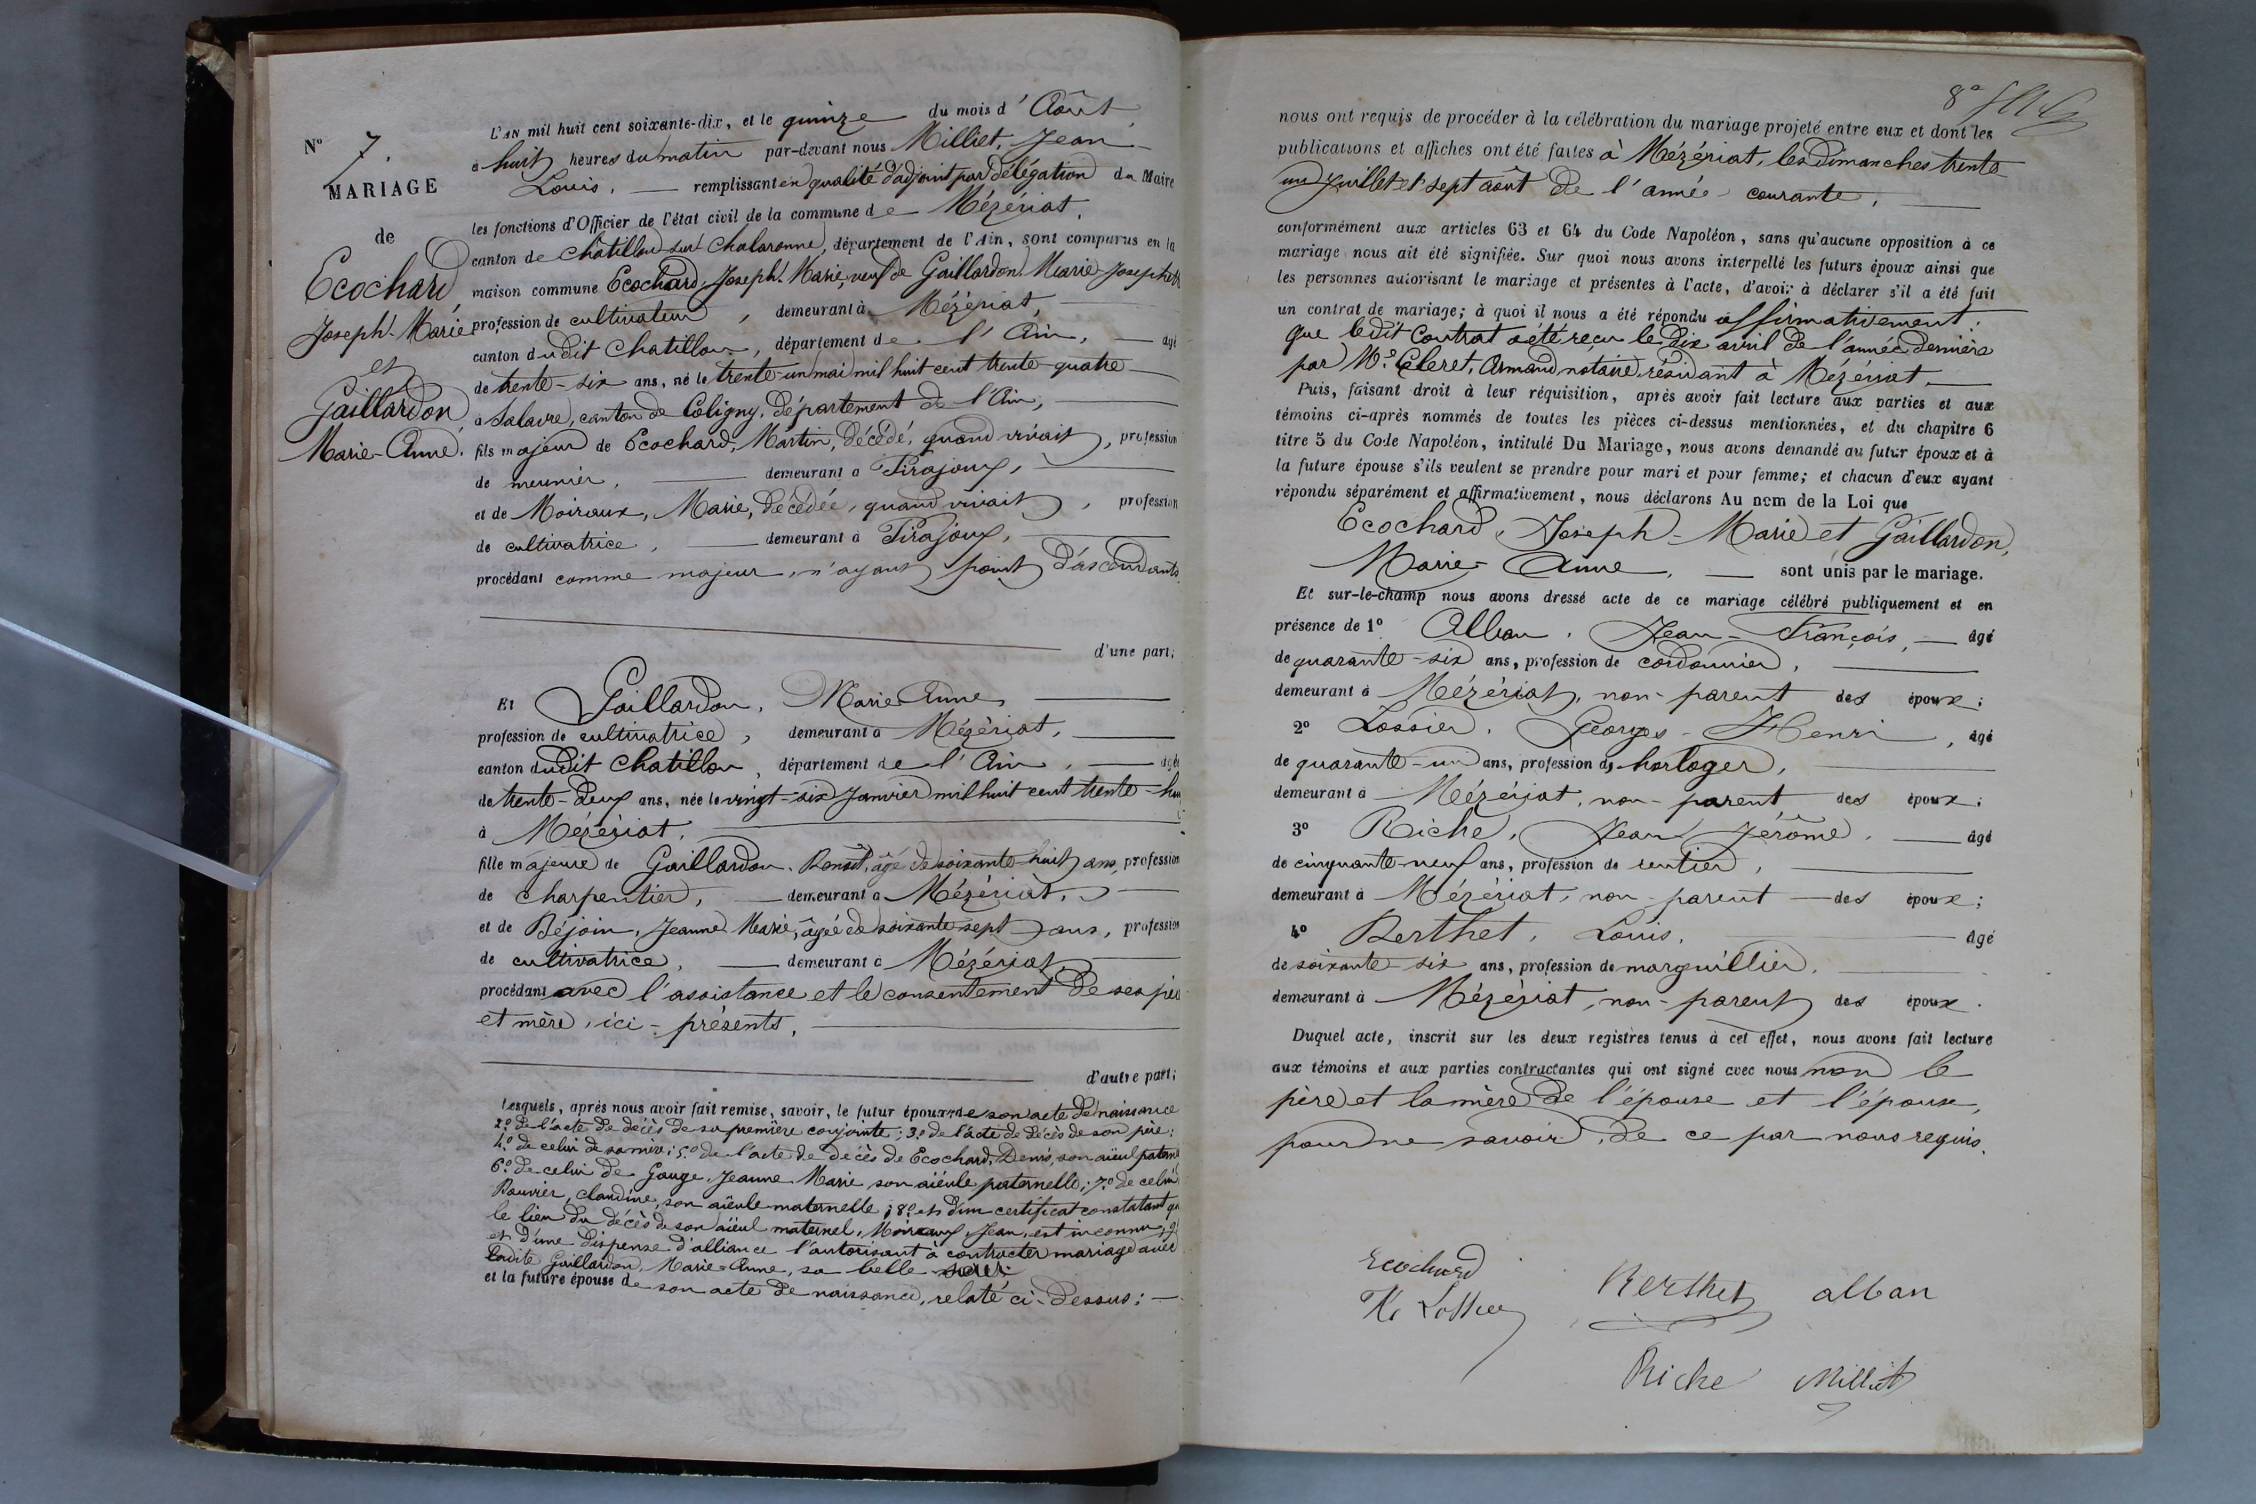 N° 7.
MARIAGE
de
Ecochard,
Joseph-Marie
et
Gaillardon,
Marie-Anne.
L'AN mil huit cent soixante-dix, et le quinze du mois d'Août,
à huit heures du matin par-devant nous Milliet, Jean-
Louis, remplissant en qualité d'adjoint par délégation du Maire
les fonctions d'Officier de l'état civil de la commune de Mézériat,
canton de Châtillon-sur-Chalaronne, département de l'Ain, sont comparus en la
maison commune Ecochard, Joseph-Marie, veuf de Gaillardon Marie-Josephte
profession de cultivateur, demeurant à Mézériat,
canton dudit Chatillon, département de l'Ain, âgé
de trente-six ans, né le trente-un mai mil huit cent trente-quatre
à Salavre, canton de Coligny, département de l'Ain,
fils majeur de Ecochard, Martin, décédé, quand vivait, profession
de meunier, demeurant à Pirajoux,
et de Moiraux, Marie, décédée, quand vivait, profession
de cultivatrice, demeurant à Pirajoux,
procédant comme majeur, n'ayant point d'ascendants,
d'une part;
Et Gaillardon, Marie-Anne,
profession de cultivatrice, demeurant à Mézériat,
canton dudit Chatillon, département de l'Ain, âgée
de trente-deux ans, née le vingt-six Janvier mil huit cent trente-huit
à Mézériat,
fille majeure de Gaillardon, Benoît, âgé de soixante-huit ans, profession
de charpentier, demeurant à Mézériat,
et de Béjoin, Jeanne Marie, âgée de soixante-sept ans, profession
de cultivatrice, demeurant à Mézériat,
procédant avec l'assistance et le consentement de ses père
et mère, ici-présents,
d'autre part;
Lesquels, après nous avoir fait remise, savoir, le futur époux 1° de son acte de naissance
2° de l'acte de décès de sa première conjointe; 3° de l'acte de décès de son père;
4° de celui de sa mère; 5° de l'acte de décès de Ecochard, Denis, son aïeul paternel
6° de celui de Gauge, Jeanne Marie son aïeule paternelle; 7° de celui
Bouvier, Claudine, son aïeule maternelle; 8° et d'un certificat constatant que
le lieu du décès de son aïeul maternel, Moiraux, Jean, est inconnu, 9°
et d'une dispense d'alliance l'autorisant à contracter mariage avec
ladite Gaillardon, Marie-Anne, sa belle-sœur;
et la future épouse de son acte de naissance, relaté ci-dessus;
8e
nous ont requis de procéder à la célébration du mariage projeté entre eux et dont les
publications et affiches ont été faites à Mézériat, les dimanches trente
un Juillet et sept août de l'année courante,
conformément aux articles 63 et 64 du Code Napoléon, sans qu'aucune opposition à ce
mariage nous ait été signifiée. Sur quoi nous avons interpellé les futurs époux ainsi que
les personnes autorisant le mariage et présentes à l'acte, d'avoir à déclarer s'il a été fait
un contrat de mariage; à quoi il nous a été répondu affirmativement;
que ledit Contrat a été reçu le dix avril de l'année dernière
par Me Cleret, Armand notaire, résidant à Mézériat.
Puis, faisant droit à leur réquisition, après avoir fait lecture aux parties et aux
témoins ci-après nommés de toutes les pièces ci-dessus mentionnées, et du chapitre 6
titre 5 du Code Napoléon, intitulé Du Mariage, nous avons demandé au futur époux et à
la future épouse s'ils veulent se prendre pour mari et pour femme; et chacun d'eux ayant
répondu séparément et affirmativement, nous déclarons Au nom de la Loi que
Ecochard, Joseph-Marie et Gaillardon,
Marie-Anne, sont unis par le mariage.
Et sur-le-champ nous avons dressé acte de ce mariage célébré publiquement et en
présence de 1° Alban, Jean-François, âgé
de quarante-six ans, profession de cordonnier,
demeurant à Mézériat, non-parent des époux;
2° Lossier, Georges-Henri, âgé
de quarante-un ans, profession de horloger,
demeurant à Mézériat, non-parent des époux;
3° Riche, Jean-Jérôme, âgé
de cinquante-neuf ans, profession de rentier,
demeurant à Mézériat, non-parent des époux;
4° Berthet, Louis, âgé
de soixante-six ans, profession de marguillier,
demeurant à Mézériat, non-parent des époux.
Duquel acte, inscrit sur les deux registres tenus à cet effet, nous avons fait lecture
aux témoins et aux parties contractantes qui ont signé avec nous non le
père et la mère de l'épouse et l'épouse,
pour ne savoir, de ce par nous requis.
Ecochard
Berthet alban
Lossier
Riche Milliet